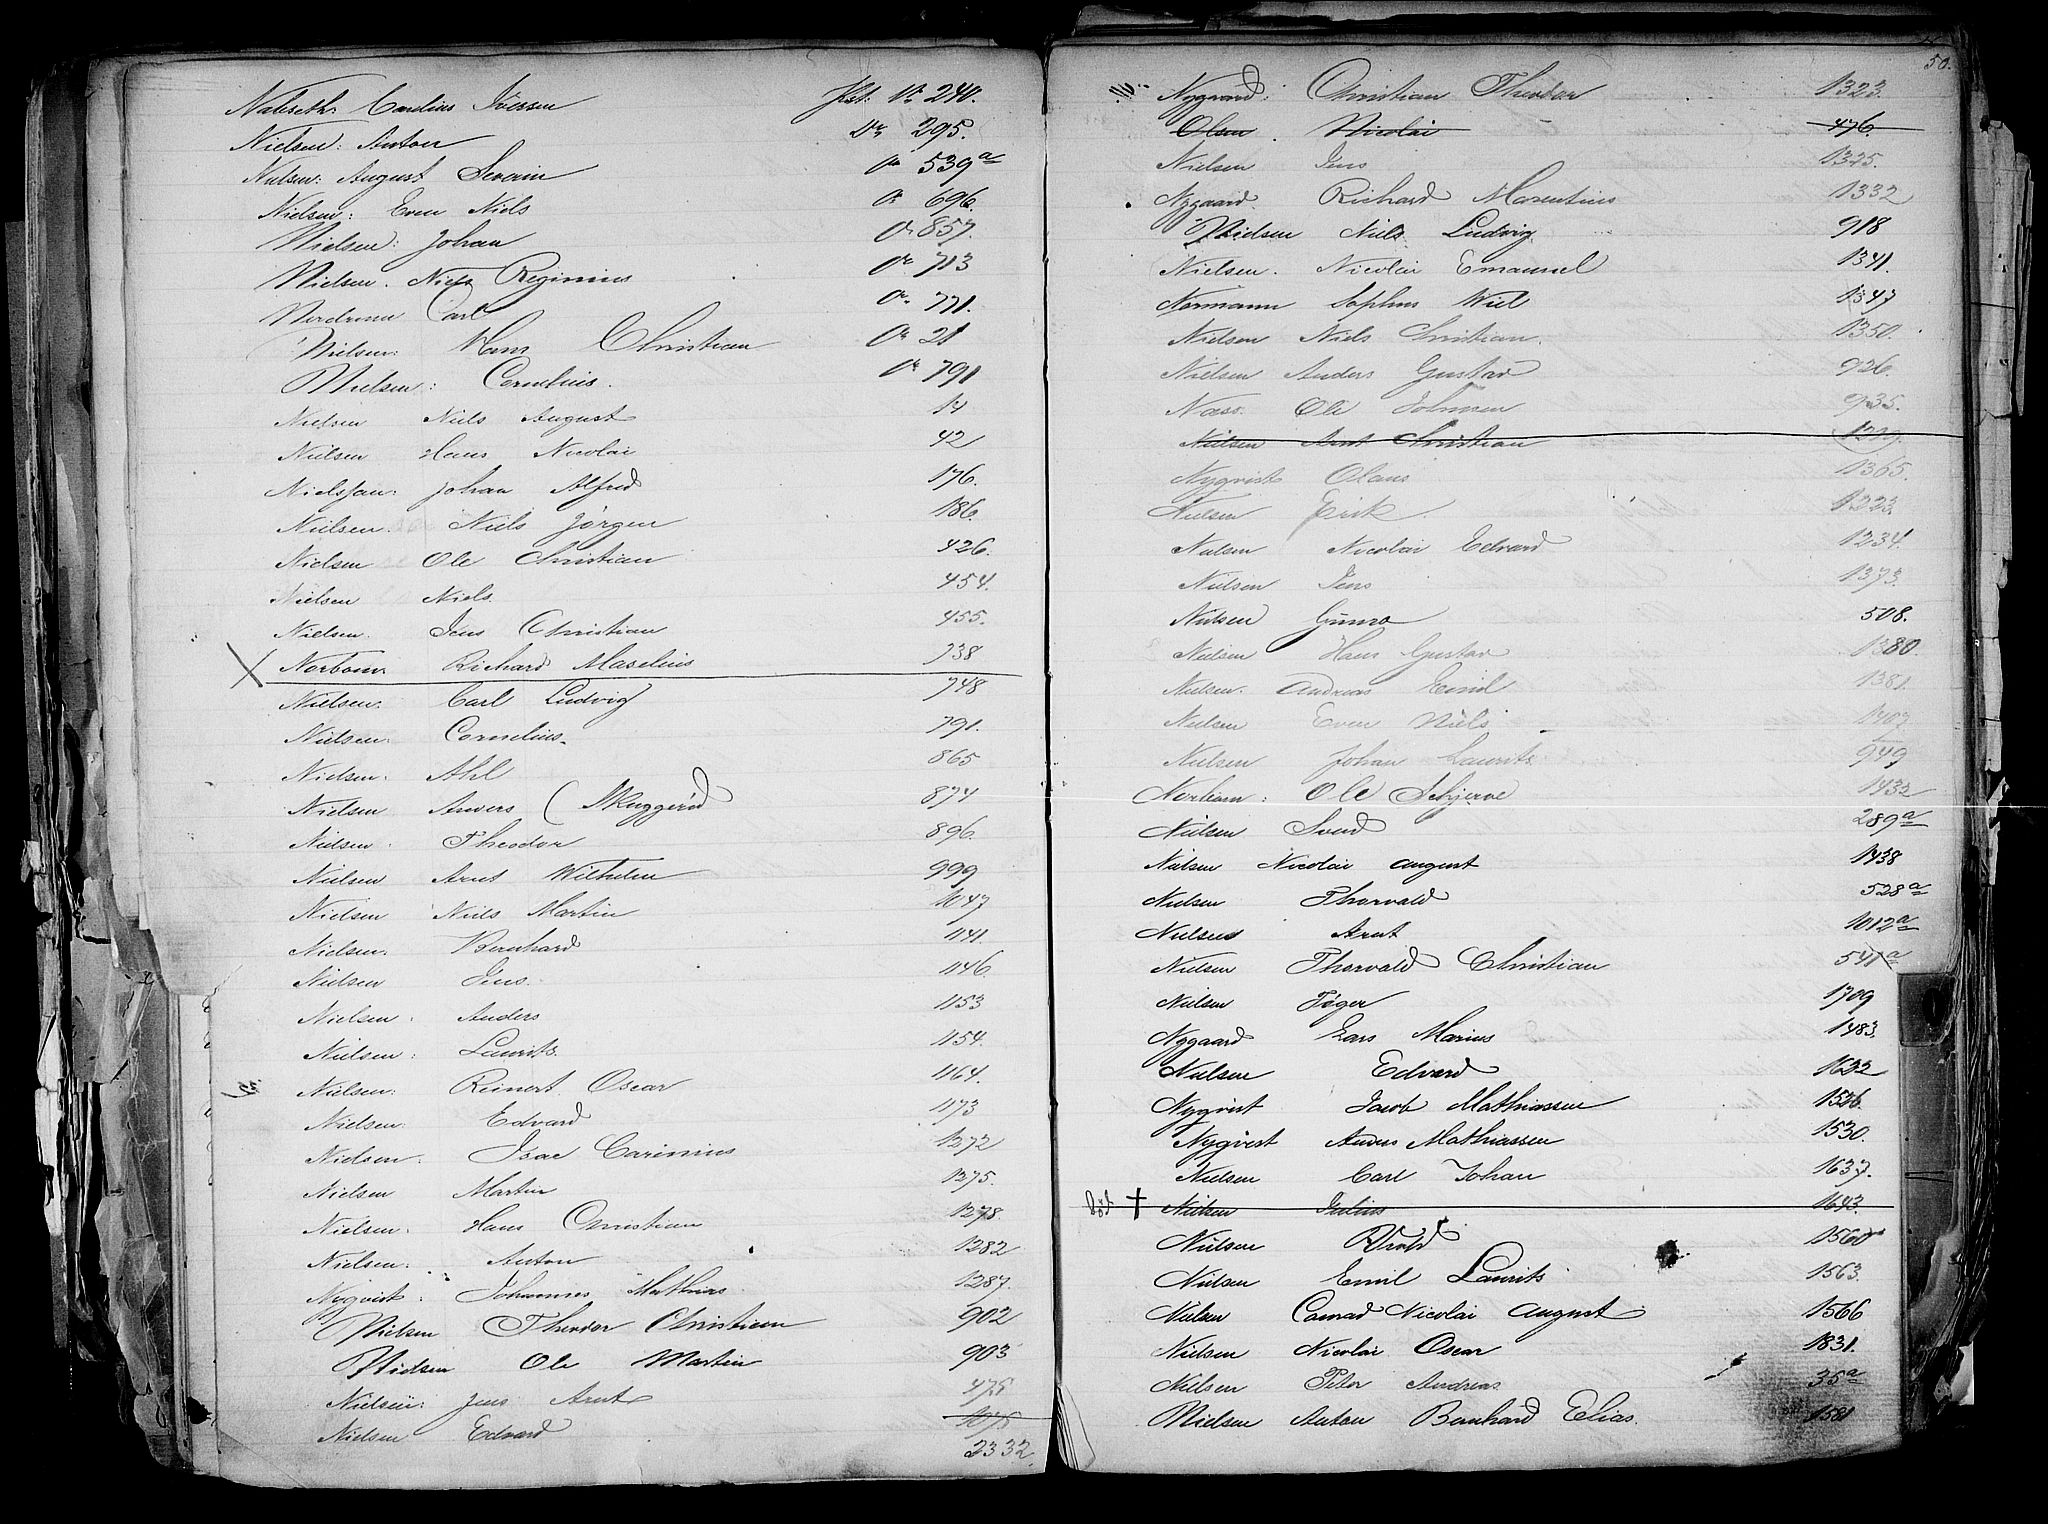 Nalseth: Carelius Iversen Pat: No 240.
Nielsen: Anton Do 295.
Nielsen: August Severin Do 539a
Nielsen: Even Niels Do 696.
Nielsen: Johan Do 857.
Nielsen. Niels Reginius Do 713
Carl Do 771.
Nielsen: Hans Christian Do 21
Nielsen: Cornelius. Do 791
Nielsen Niels August 14
Nielsen Hans Nicolai 42
Nielssen: Johan Alfred 176.
Nielsen. Niels Jörgen 186.
Nielsen Ole Christian 426.
Nielsen Niels. 454.
Nielsen. Jens Christian 455.
Norbom. Richard Maselius 738
Nielsen. Carl Ludvig 748
Nielsen: Cornelius. 791.
Nielsen: Ahl 865
Nielsen Anders (Skuggerud 874
Nielsen. Theodor 896.
Nielsen Arnt Wilhelm 999
Nielsen Niels Martin 1047
Nielsen: Bernhard 1141.
Nielsen Jens. 1146.
Nielsen. Anders 1153
Nielsen: Laurits. 1154.
Nielsen: Reinert Oscar 1164.
Nielsen: Edvard 1173
Nielsen. Isac Carinius 1272
Nielsen Martin 1275.
Nielsen: Hans Christian 1278.
Nielsen: Anton 1282
Nyqvist: Johannes Mathias. 1287.
Nielsen Theodor Christian 902
Nielsen Ole Martin 903
Nielsen: Jens Arnt 475
Nielsen Edvard 1075
2332.
50.
Nygaard: Christian Theodor 1323.
Olsen. Nicolai 476.
Nielsen Jens 1325.
Nygaard. Richard Marentius 1332
Nielsen Niels Ludvig. 918
Nielsen. Nicolai Emanuel 1341.
Normann Sophus Wiel 1347
Nielsen Niels Christian. 1350.
Nielsen Anders Gustav 926.
Næss. Ole Johnsen 935.
Nielsen Arnt Christian 1299.
Nyqvist Olaus 1365.
Nielsen Erik. 1223.
Nielsen Nicolai Edvard 1234.
Nielsen Jens 1373.
Nielsen Gunno 508.
Nielsen Hans Gustav 1380.
Nielsen. Andreas Emil 1381.
Nielsen Even Niels 1407.
Nielsen Johan Laurits. 949
Norheim: Ole Schjerve 1432
Nielsen Svend 289a
Nielsen Nicolai August 1438
Nielsen Thorvald 528a
Nielsen Arnt 1012a
Nielsen Thorvald Christian 541a
Nielsen Tøger 1709
Nygaard Lars Marius 1483.
Nielsen Edvard 1622
Nyqvist Jacob Mathiassen 1526.
Nyqvist Anders Mathiassen 1530.
Nielsen Carl Johan 1637.
Död. † Nielsen Julius 1643.
Nielsen 1560
Nielsen Emil Laurits 1563.
Nielsen Conrad Nicolai August 1566
Nielsen Nicolai Oscar 1831.
Nielsen Peter Andreas 35a
Nielsen Anton Bernhard Elias. 1581